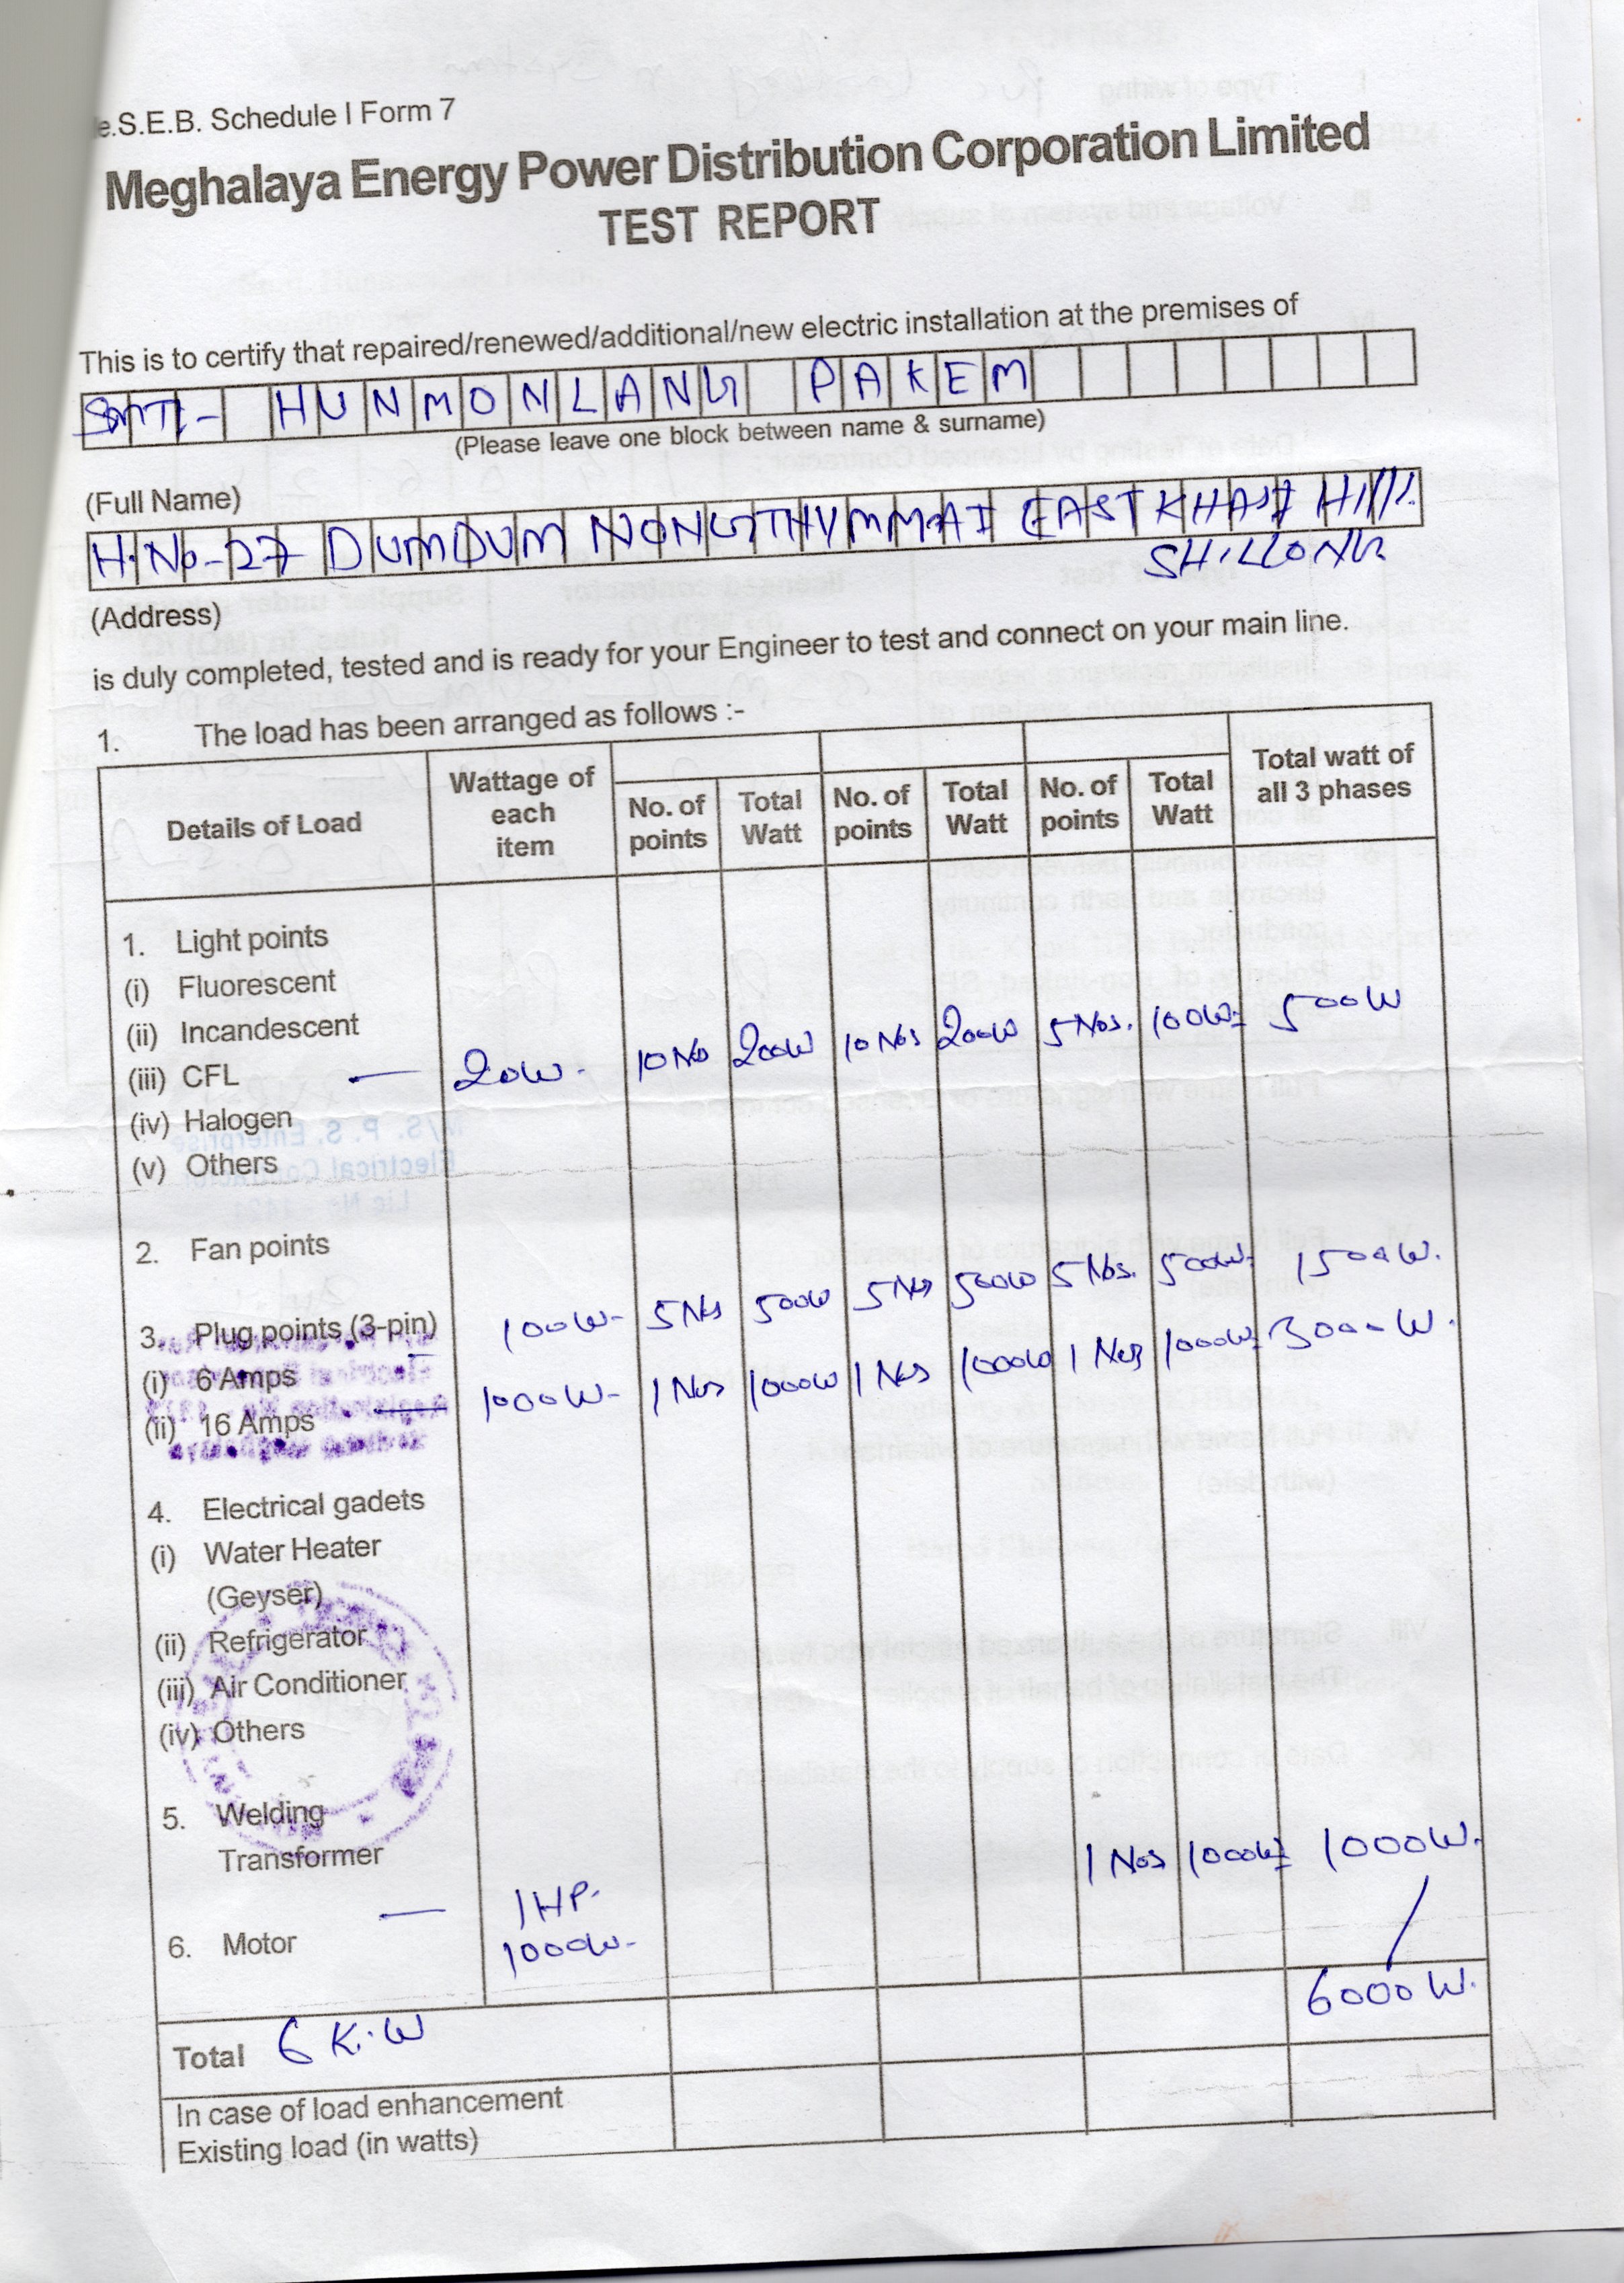 e.S.E.B. Schedule I Form 7
Meghalaya Energy Power Distribution Corporation Limited
TEST REPORT
This is to certify that repaired/renewed/additional/new electric installation at the premises of
SMTI- HUNMONLANG PAKEM
(Please leave one block between name & surname)
(Full Name)
H.No-27 DUMDUM NONGTHYMMAI EAST KHASI HILLS
SHILLONG
(Address)
is duly completed, tested and is ready for your Engineer to test and connect on your main line.
1. The load has been arranged as follows :-
Details of Load Wattage of each item No. of points Total Watt No. of points Total Watt No. of points Total Watt Total watt of all 3 phases
1. Light points
(i) Fluorescent
(ii) Incandescent
(iii) CFL — 20W- 10 No 200W 10 Nos 200W 5 Nos. 100W= 500W
(iv) Halogen
(v) Others
2. Fan points
3. Plug points (3-pin)
(i) 6 Amps 100W- 5 Nos 500W 5 Nos 500W 5 Nos. 500W= 1500W.
(ii) 16 Amps — 1000W- 1 Nos 1000W 1 Nos 1000W 1 Nos 1000W= 3000W.
4. Electrical gadets
(i) Water Heater
(Geyser)
(ii) Refrigerator
(iii) Air Conditioner
(iv) Others
5. Welding
Transformer
6. Motor — 1HP- 1000W- 1 Nos 1000W= 1000W.
Total 6 K.W 6000 W.
In case of load enhancement
Existing load (in watts)